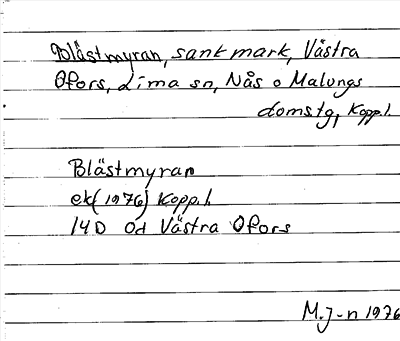 Blästmyran, sank mark, Västra
Ofors, Lima sn, Nås o Malungs
domstg, Kopp.l.
Blästmyran
ek(1976) Kopp.l.
14D 0d Västra Ofors
M.J-n 1976